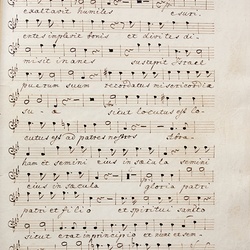 exaltavit humiles esuri-
entes implevit bonis et divites di-
misit inanes suscepit Israel
puerum suum recordatus misericordia
su- a sicut locutus est lo-
cutus est ad patres nostros Abra-
ham et semini eius in sæcula semini
eius in sæcula gloria patri
patri et filio et spiritui sancto
sicut erat in principio et nunc et sem-